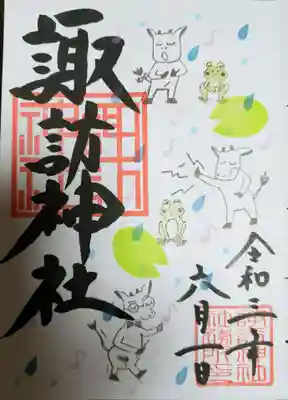 諏訪神社
令和三年
六月一日